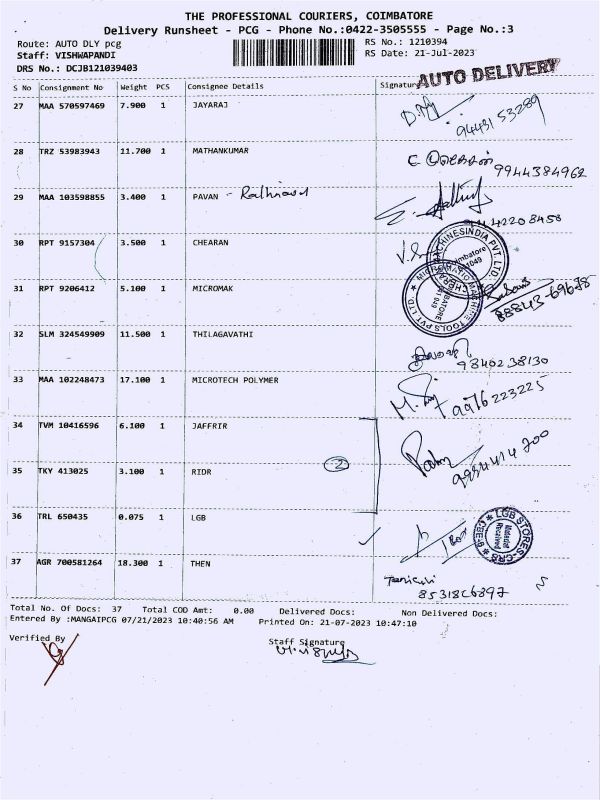 THE PROFESSIONAL COURIERS, COIMBATORE
Delivery Runsheet - PCG - Phone No.:0422-3505555 - Page No.:3
Route: AUTO DLY pcg RS No.: 1210394
Staff: VISHWAPANDI RS Date: 21-Jul-2023
DRS No.: DCJB121039403
AUTO DELIVERY
S No Consignment No Weight PCS Consignee Details Signature
27 MAA 570597469 7.900 1 JAYARAJ
9443153289
28 TRZ 53983943 11.700 1 MATHANKUMAR
9944384962
29 MAA 103598855 3.400 1 PAVAN -
30 RPT 9157304 3.500 1 CHEARAN
31 RPT 9206412 5.100 1 MICROMAK
88843-69678
32 SLM 324549909 11.500 1 THILAGAVATHI
9840238130
33 MAA 102248473 17.100 1 MICROTECH POLYMER
9976223225
34 TVM 10416596 6.100 1 JAFFRIR
2
35 TKY 413025 3.100 1 RIDR
36 TRL 650435 0.075 1 LGB
LGB STORES-CRS
Material
Received
37 AGR 700581264 18.300 1 THEN
8531826897
Total No. Of Docs: 37 Total COD Amt: 0.00 Delivered Docs: Non Delivered Docs:
Entered By :MANGAIPCG 07/21/2023 10:40:56 AM Printed On: 21-07-2023 10:47:10
Verified By Staff Signature